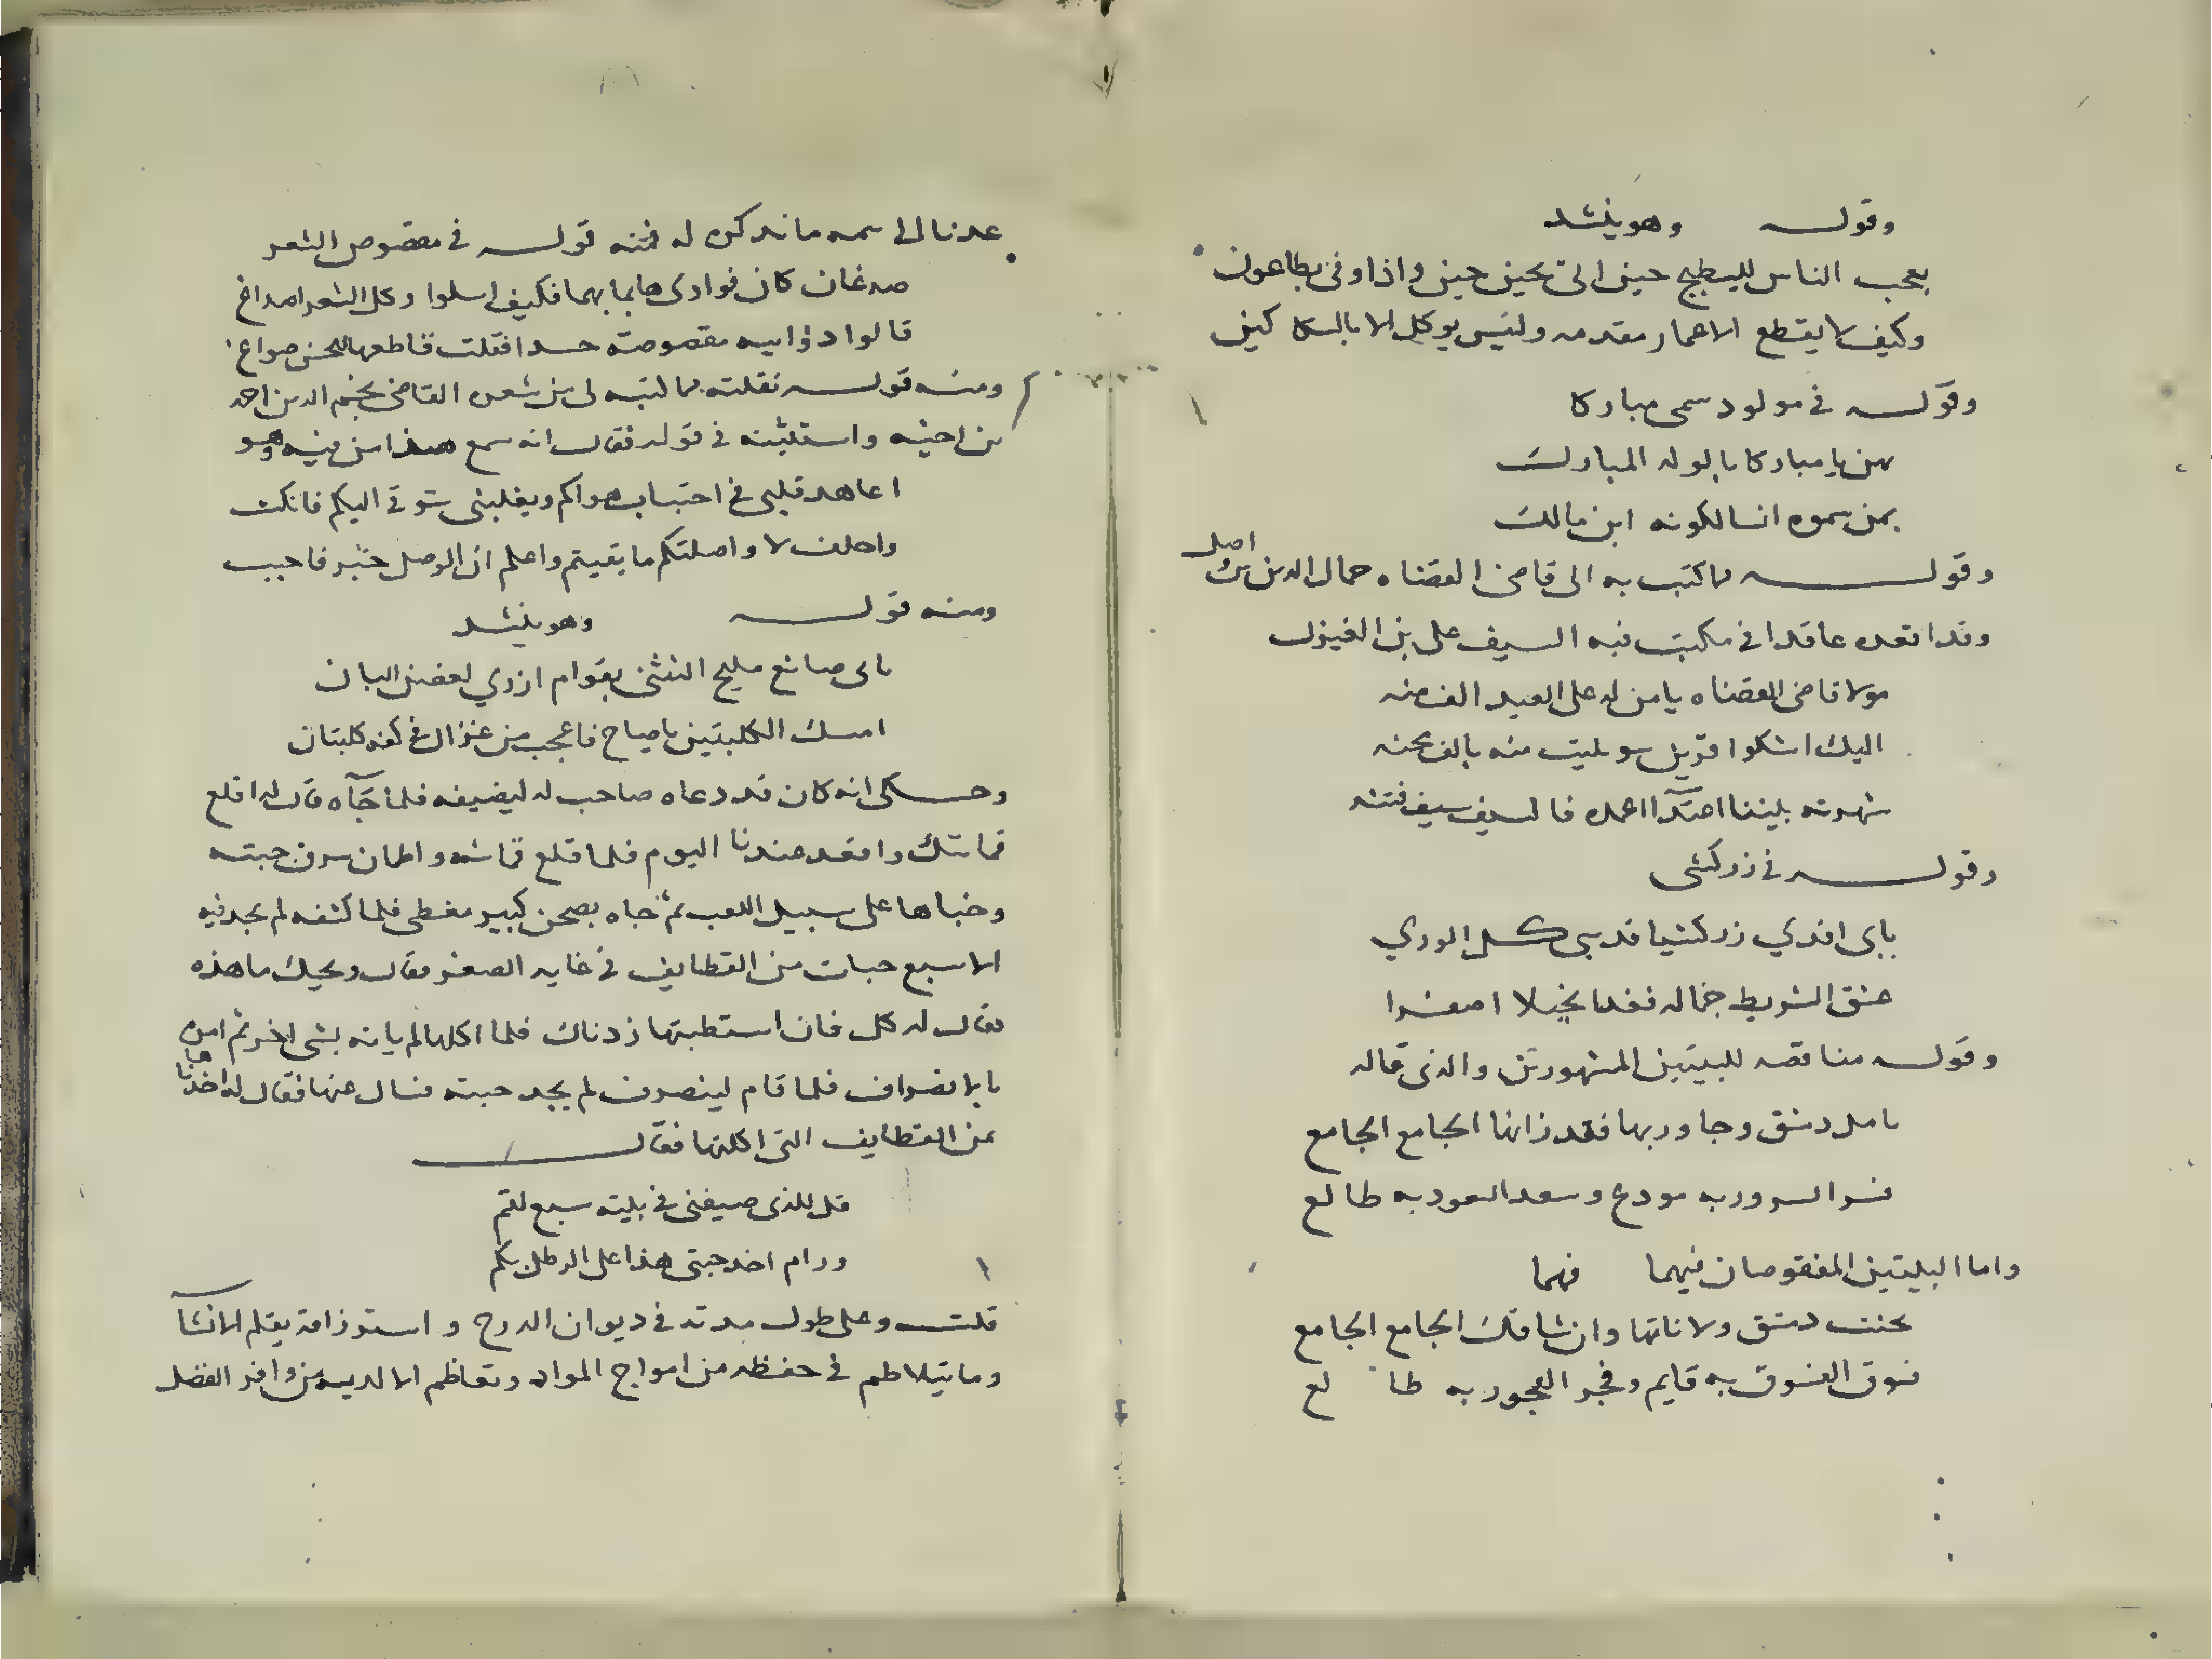 وقوله وهو ينشد
يعجب الناس للبسطيح حين اتى بحين حين واذا وفى بطاعون
وكيف لا يقطع الاعمار مقدمه وليس يوكل الا بالسكاكين
وقوله في مولود سمى مباركا
يهن يا مباركا بالولد المبارك
بمن سموه انسا لكونه ابن مالك
وقوله مما كتب به الى قاضى القضاه جمال الدين بن اصل
وقد اقعده عاقدا في مكتب فيه السيف على بن
مولا قاضى القضاه يا من له على العبد الف منه
اليك اشكوا قرين سو بليت منه بالف محنه
شهرته بيننا اعتدا اغمده فالسيف سيف فتنه
وقوله في زركشى
بابى افدي زركشيا قد سبى كل الوري
عشق الشريط جماله فغدا نحيلا اصفرا
وقوله مناقضه للبيتين المشهورتين والذى قاله
يامل دمشق وجاور بها فقد زانها الجامع الجامع
فسر السرور به مودع وسعد السعود به طالع
واما البيتين المنقوضان فيهما فهما
تجنب دمشق ولا تاتها وان شاقك الجامع الجامع
فسوق الفسوق به قايم وفجر الفجور به طالع
عدنا الى تتمه ما نذكره له فمنه قوله في مقصوص الشعر
صدغان كان فوادى هايما بهما فكيف اسلوا وكل الشعر اصداغ
قالوا ذوايبه مقصوصة حسدا فقلت قاطعها للحسن صواغ
ومنه قوله نقلته مما كتبه لى من شعره القاضى نجم الدين احمد
من اخيه واستثبته في قوله فقال انه سمع هذا من فيه وهو
اعاهد قلبى في اجتناب هواكم ويغلبنى شوقى اليكم فانكث
واحلف لا واصلتكم ما بقيتم واعلم ان الوصل خير فاحنث
ومنه قوله وهو ينشد
بابى صانع مليح التثنى بقوام ازري لغصن البان
امسك الكلبتين يا صاح فاعجب من غزال في كفه كلبتان
وحكى انه كان قد دعاه صاحب له ليضيفه فلما جآه قال له اقلع
قماشك واقعد عندنا اليوم فلما قلع قماشه واطمان سرق جبته
وخباها على سبيل اللعب ثم جاه بصحن كبير مغطى فلما كشفه لم يجد فيه
الا سبع حبات من القطايف في غايه الصغر فقال ويحك ما هذه
فقال له كل فان استطبتها زدناك فلما اكلها لم ياته بشى اخر ثم امره
بالانصراف فلما قام لينصرف لم يجد جبته فسال عنها فقال له اخذناها
ثمن القطايف التى اكلتها فقال
قل للذى ضيفنى في بيته سبع لقم
ورام اخذ جبتى هذا على الرطل بكم
قلت وعلى طول مدته في ديوان الدرج واسترزاقه بقلم الانشآ
وما يتلاطم في حفظه من امواج المواد وتعاظم الا لديه من وافر الفضل